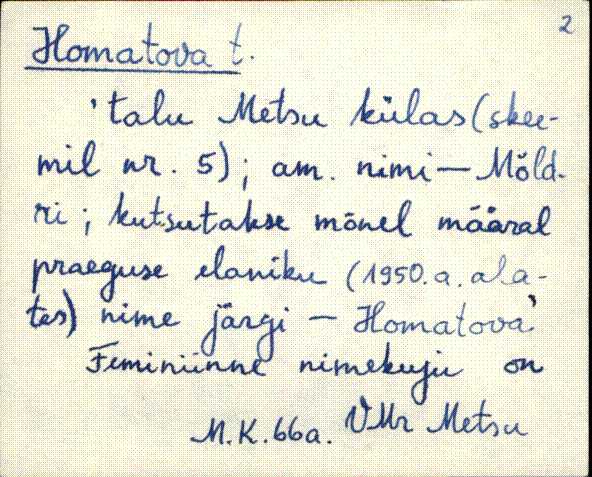 2
Homatova t.
'talu Metsu külas (skee-
mil nr. 5); am. nimi — Möld-
ri; kutsutakse mõnel määral
praeguse elaniku (1950.a. ala-
tes) nime järgi — Homatova'
Feminiinne nimekuju on
M.K. 66a. VMr Metsu